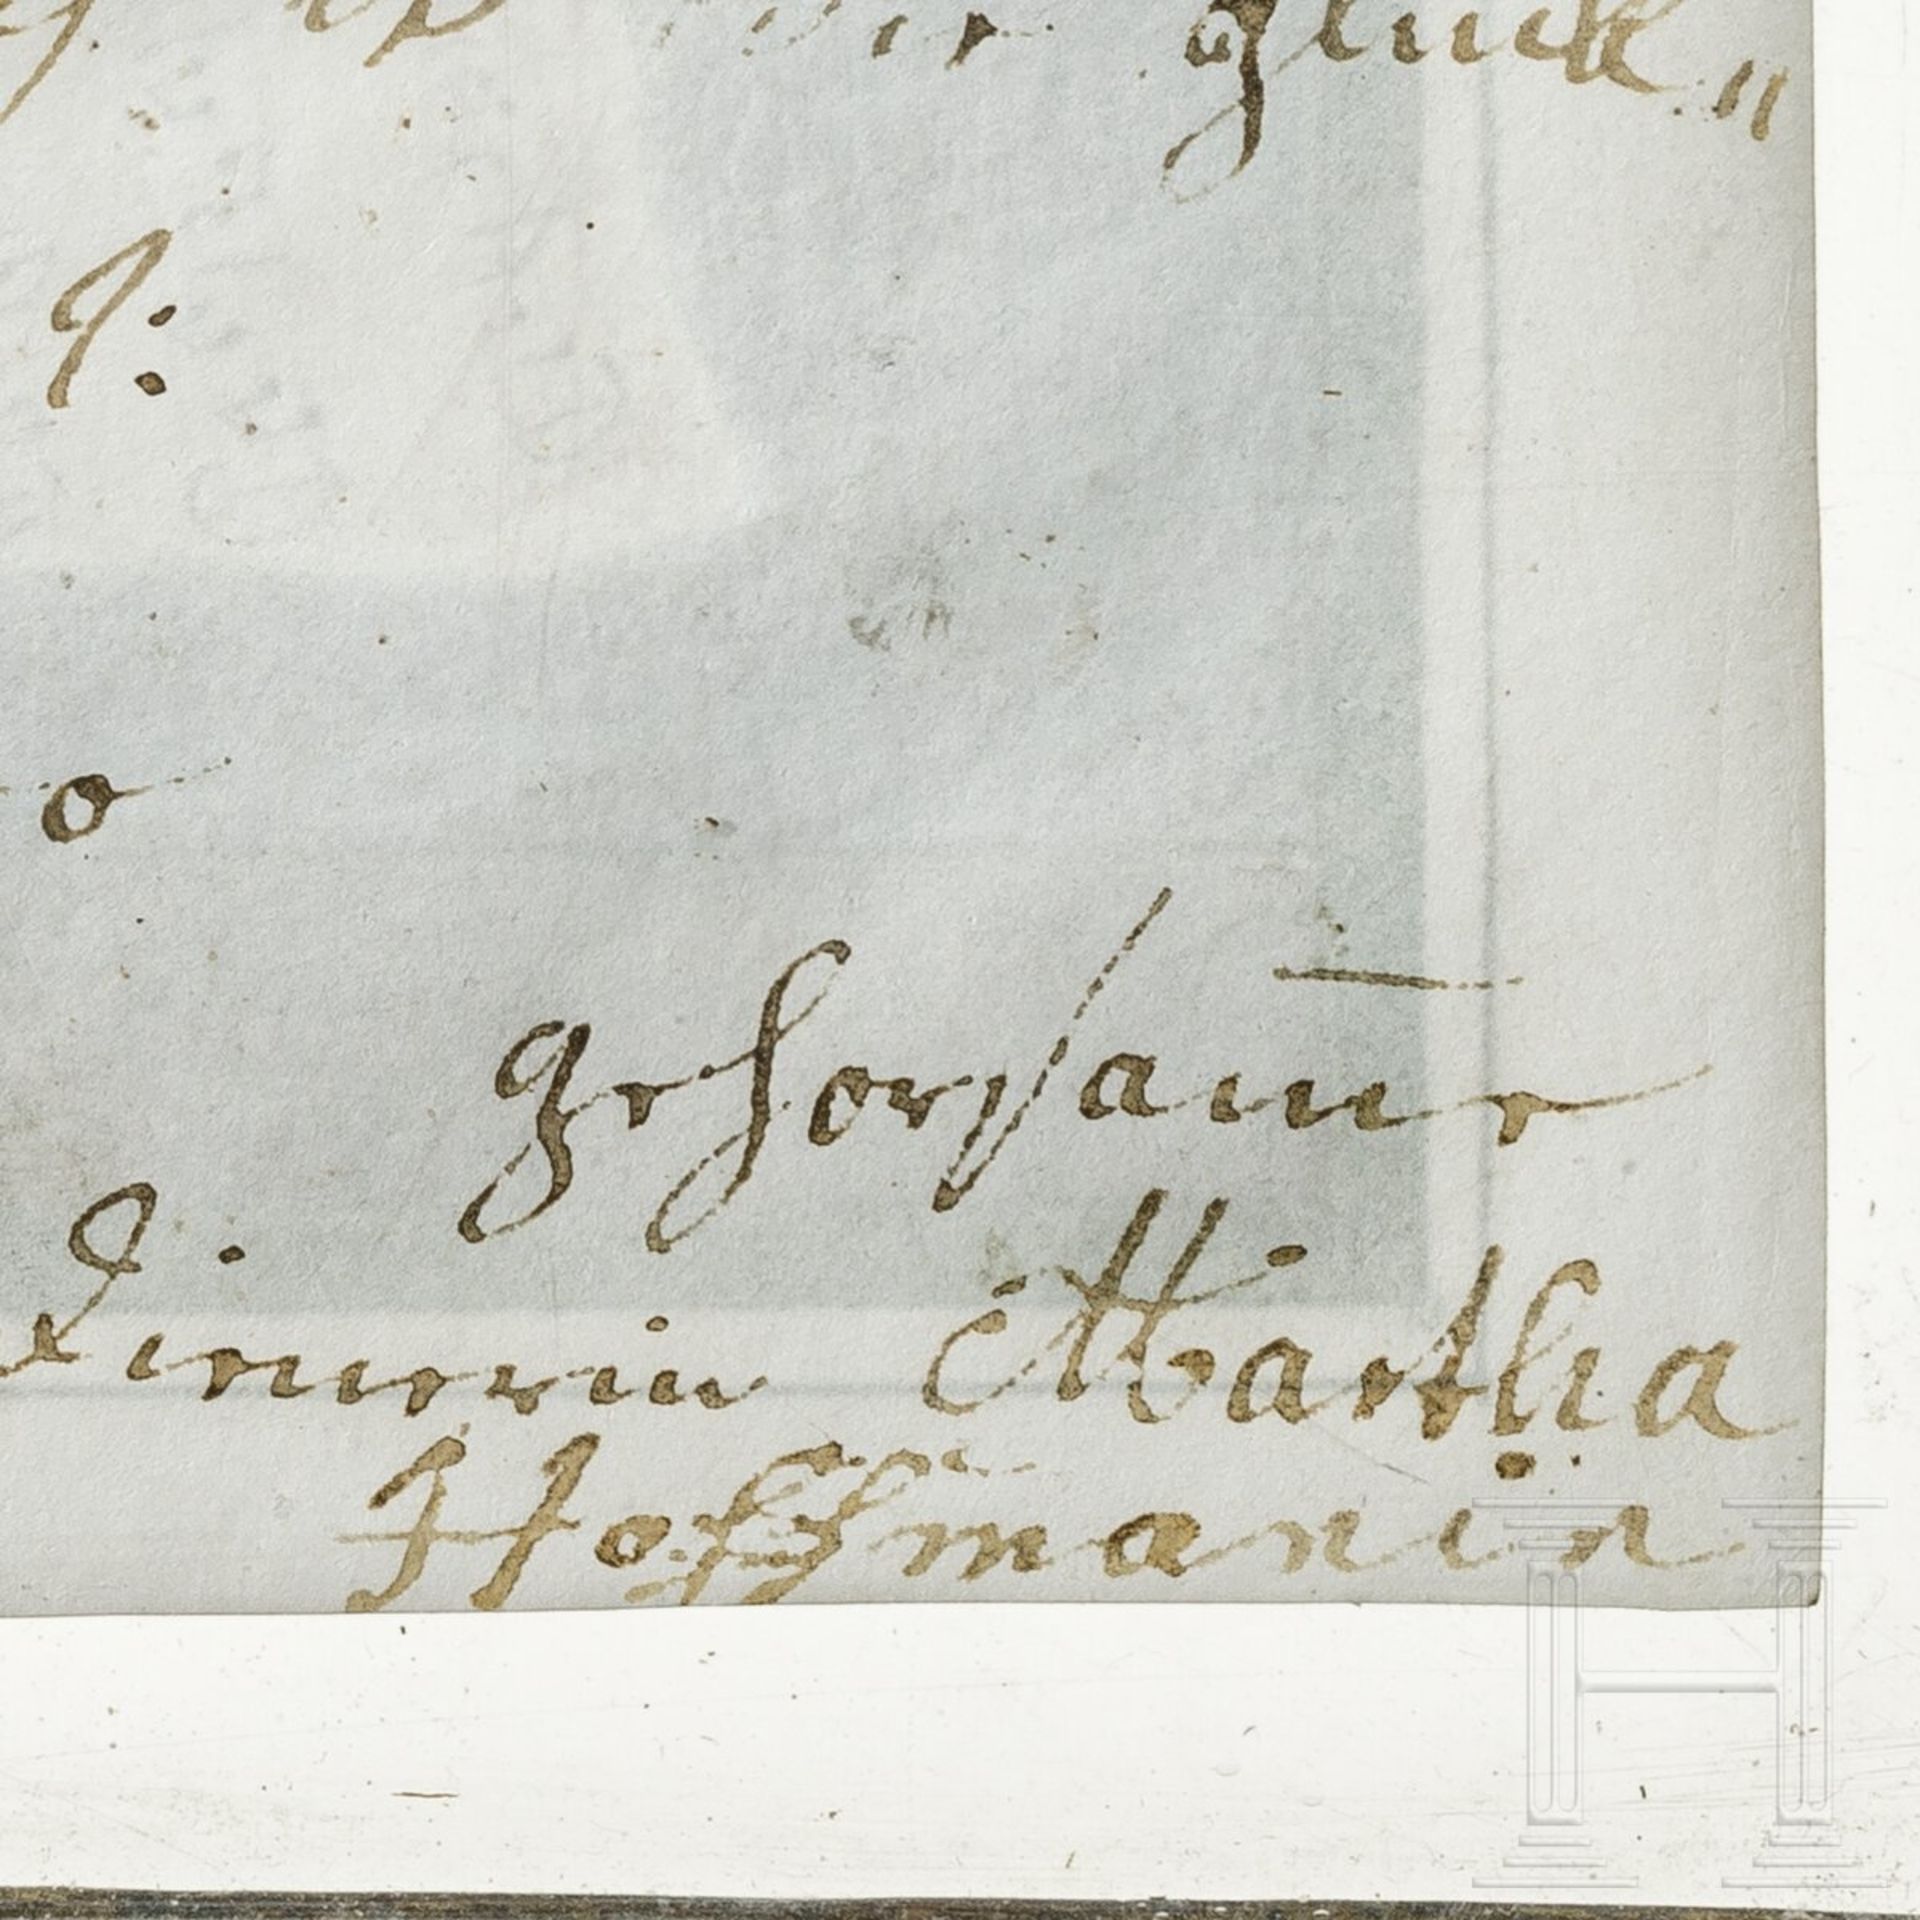 glück„
gehorsame
Dienerin Martha
Hoffmanin